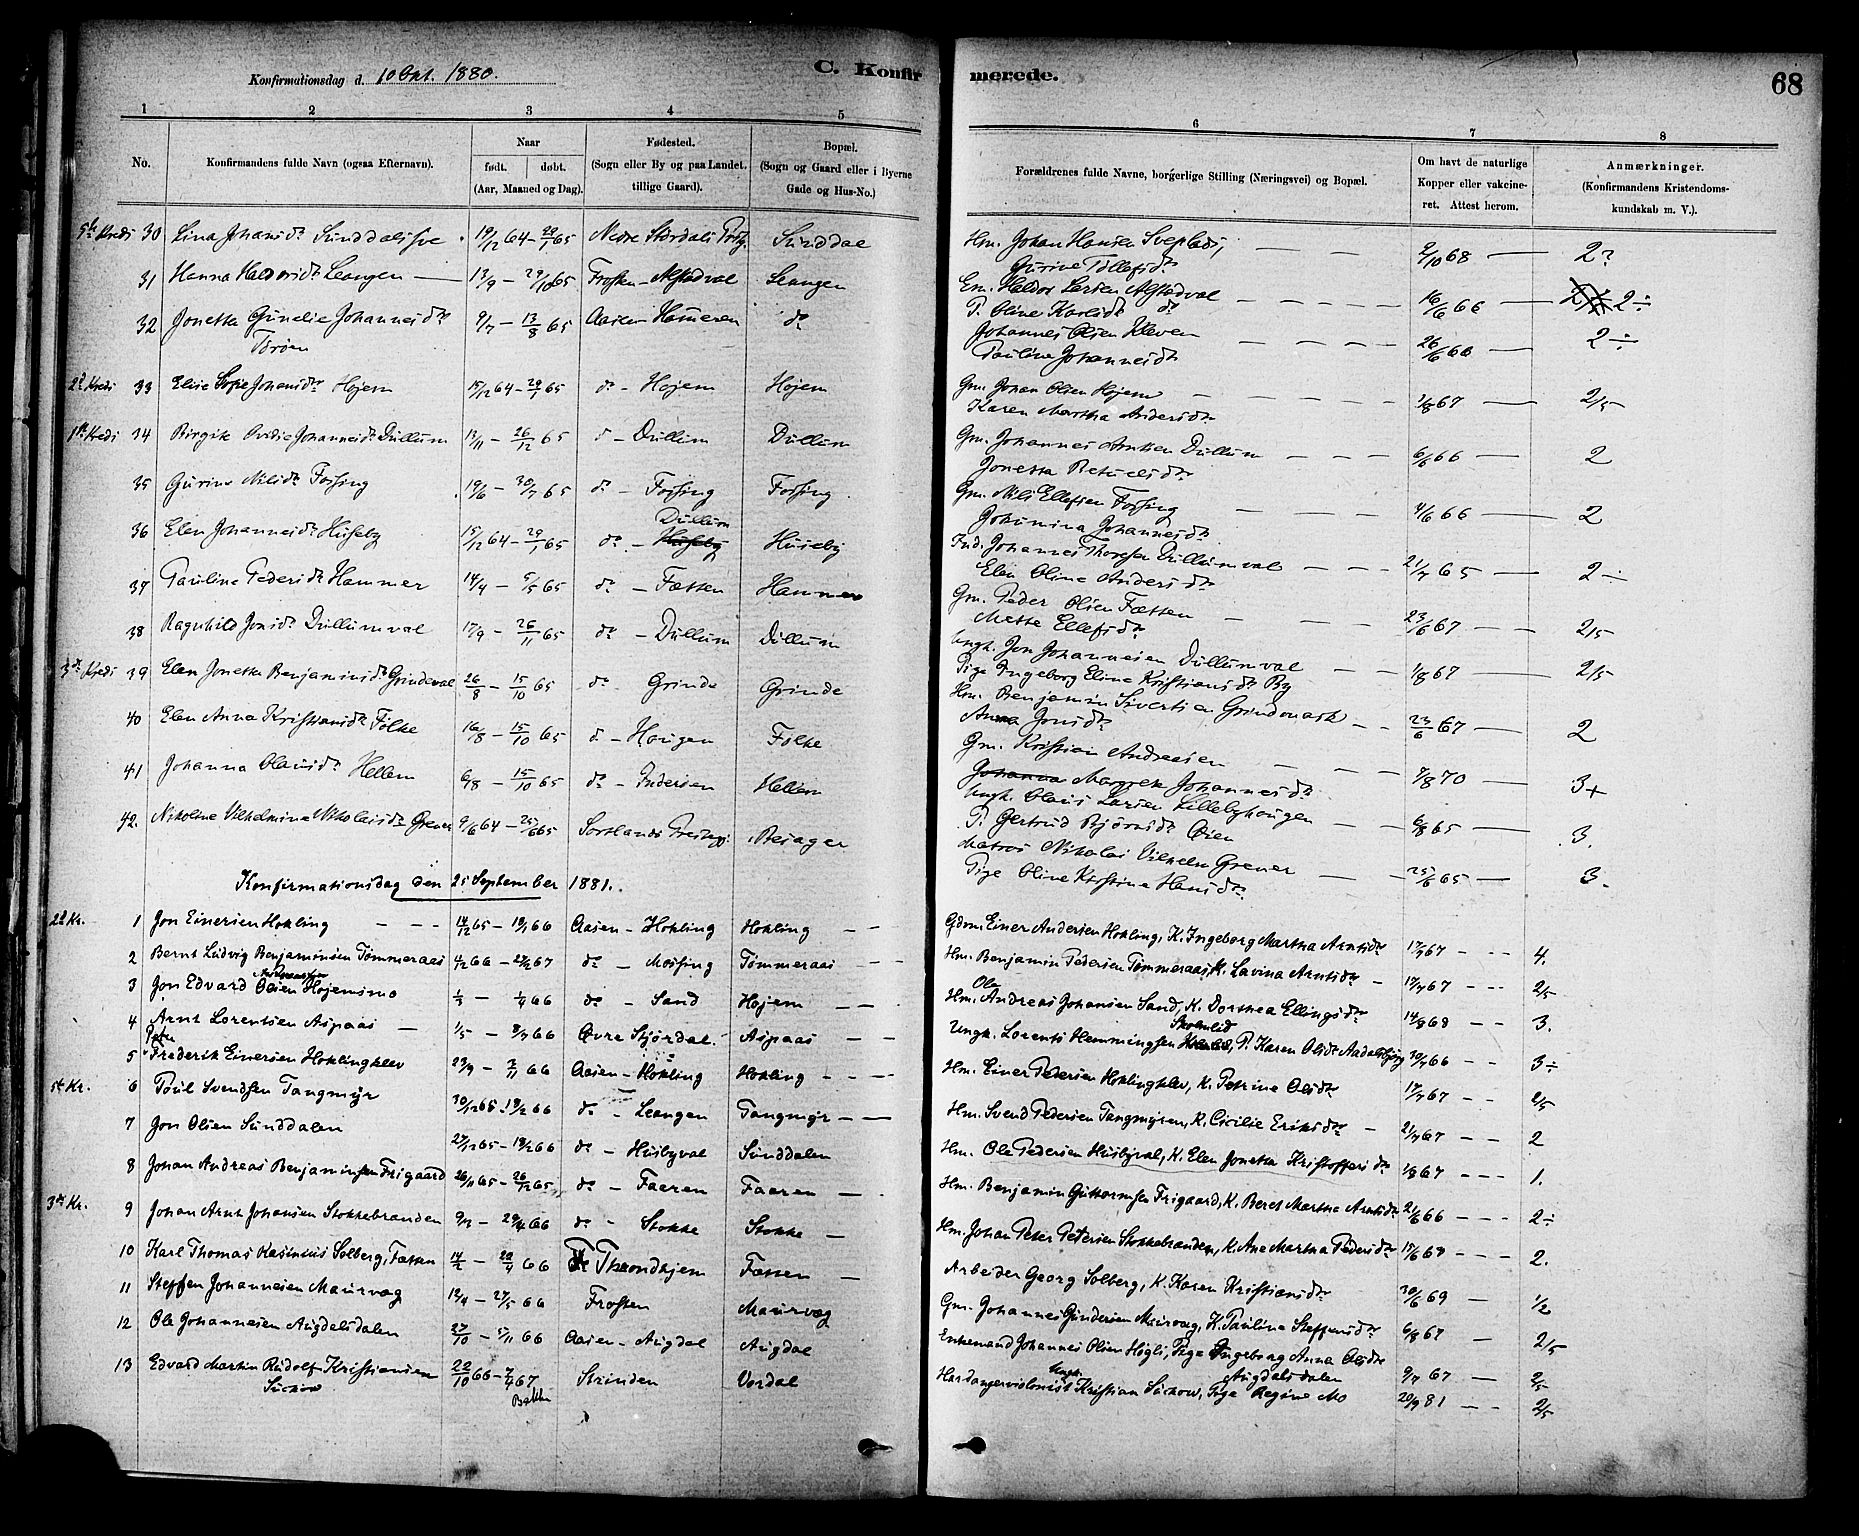 Konfirmationsdag d. 10 Okt. 1880.
C. Konfirmerede.
68
1 2 3 4 5 6 7 8
No.
Konfirmandens fulde Navn (ogsaa Efternavn).
Naar
født. døbt.
(Aar, Maaned og Dag).
Fødested.
(Sogn eller By og paa Landet.
tillige Gaard).
Bopæl.
(Sogn og Gaard eller i Byerne
Gade og Hus-No.)
Forældrenes fulde Navne, borgerlige Stilling (Næringsvei) og Bopæl.
Om havt de naturlige
Kopper eller vakcine-
ret. Attest herom.
Anmærkninger.
(Konfirmandens Kristendoms-
kundskab m. V.).
5te Kreds 30 Lina Johansdr 19/12 64 – 29/1 65 Nedre Stördals Sunddal Hm. Johan Hansen Sveplads, 2/10 68 — 2?
Gurine Tollefsdr
31 Hanna Haldorsdr Leangen — 13/9 – 29/10 65 Frosten – Alstadval Leangen Em. Haldor Larsen Alstadval 16/6 66 — 2÷
P. Oline Karlsdr dr
32 Jonetta Gunelie Johannesdr 9/7 – 13/8 65 Aasen – Hammeren do Johannes Olsen Kleven 26/6 66 — 2÷
Töröen Pauline Johannesdr
2d Kreds 33 Elise Sofie Johansdr Hojem 15/12 64 – 29/1 65 do – Hojem Hojem Gm. Johan Olsen Hojem 1/8 67 — 2/5
Karen Martha Andersdr
1ste Kreds 34 Birgite Ovidie Johannesdr Dullum 13/11 – 26/12 65 do – Dullum Dullum Gm. Johannes Arntsen Dullum 6/6 66 — 2
Jonetta Betuelsdr
35 Gurine Nilsdr Forsing 19/6 – 30/7 65 do – Forsing Forsing Gm. Nils Ellefsen Forsing 4/6 66 — 2
Johanna Johannesdr
36 Elen Johannesdr Huseby 15/12 64 – 29/1 65 do – Huseby Dullum Huseby Ind. Johannes Thoresen Dullumval 21/7 65 — 2÷
Elen Oline Andersdr
37 Pauline Pedersdr Hammer 14/4 – 5/5 65 do – Fætten Hammer Gm. Peder Olsen Fætten 23/6 67 — 2/5
Mette Ellefsdr
38 Ragnhild Jonsdr Dullumval 17/9 – 26/11 65 do – Dullum Dullum Ungk. Jon Johannesen Dullumval 1/8 67 — 2/5
Pige Ingeborg Eline Kristiansdr By
3die Kreds 39 Elen Jonetta Benjaminsdr Grindeval 26/8 – 15/10 65 do Grinde Grinde Hm. Benjamin Sivertsen Grindemark 23/6 67 — 2
Anna Jonsdr
40 Elen Anna Kristiansdr Folke 16/8 – 15/10 65 do – Haugen Folke Gm. Kristian Andreasen 7/8 70 — 3+
Johanna Margrete Johannesdr
41 Johanna Olausdr Hellem 6/8 – 15/10 65 do – Indersen Hellem Ungk. Olaus Larsen Lillebyhaugen 6/8 65 — 3.
P. Gertrud Bjørnsdr Øien
42. Nikoline Vilhelmine Nikolaisdr Grener 9/6 64 – 25/6 65 Sortlands Præstegj. Besager Matros Nikolai Vilhelm Grener 25/6 65 — 3.
Pige Oline Kristine Hansdr
Konfirmationsdag den 25 September 1881.
2d Kr. 1 Jon Einersen Hokling 14/12 65 – 19/1 66 Aasen – Hokling Hokling Gdm. Einer Andersen Hokling, K. Ingeborg Martha Arntsdr 17/7 67 4.
2 Bernt Ludvig Benjaminsen Tömmeraas 4/12 66 – 27/2 67 do – Mossing Tømmeraas Hm. Benjamin Pedersen Tømmeraas, K. Lavina Arntsdr 17/7 67 2/5
3 Jon Edvard Olsen Andreassen Hojemsmo 1/3 – 1/4 66 do – Sand Hojem Hm. Ola Andreas Johansen Sand, K. Dorthea Ellingsdr 14/8 68 3.
4 Arnt Lorentsen Aspaas 1/5 – 8/7 66 Øvre Stjørdal Aspaas Ungk. Lorents Hemmingsen P. Karen Olsdr 30/7 66 3÷
5 Peter Frederik Einersen Hoklingklev 23/9 – 2/11 66 Aasen – Hokling Hokling Hm. Einer Pedersen Hoklingklev, K. Petrine Olsdr 17/7 67 2/5
5te Kr. 6 Poul Svendsen Tangmyr 30/12 65 – 18/2 66 do – Leangen Tangmyr Hm. Svend Pedersen Tangmyren, K. Cicilie Eriksdr 21/7 67 2
7 Jon Olsen Sunddalen 27/12 65 – 18/2 66 do – Husbyval Sunddalen Hm. Ole Pedersen Husbyval, K. Elen Jonetta Kristoffersdr 1/8 67 1.
8 Johan Andreas Benjaminsen Frigaard 26/11 65 – 26/12 65 do – Faaren Faaren Hm. Benjamin Guttormsen Frigaard, K. Beret Martha Arntsdr 21/6 66 2÷
3die Kr. 9 Johan Arnt Johansen Stokkebranden 9/2 – 29/4 66 do – Stokke Stokke Hm. Johan Peter Petersen Stokkebranden, K. Ane Martha Pedersdr 17/6 68 2.
10 Karl Thomas Kasinius Solberg, Fætten 14/2 – 22/4 66 Throndhjem Fætten Arbeider Georg Solberg, K. Karen Kristiansdr 30/6 69 1/2
11 Steffen Johannesen Maurvag 12/4 – 27/5 66 Frosten Maurvæg Gm. Johannes Gundersen Maurvag, K. Pauline Steffensdr 6/8 67 2/5
12 Ole Johannesen Augdalsdalen 27/10 – 5/11 66 Aasen – Augdal Augdal Enkemand Johannes Olsen Högli, Pige Ingeborg Anna Olsdr Augdalsdalen 9/7 67 2/5
13 Edvard Martin Rudolf Kristiansen 22/10 66 – 7/4 67 Strinden Vordal Hardangerviolonist Ungk. Kristian Suckow, Pige Regine Mo 20/9 81 2/5
Suckow Bakke